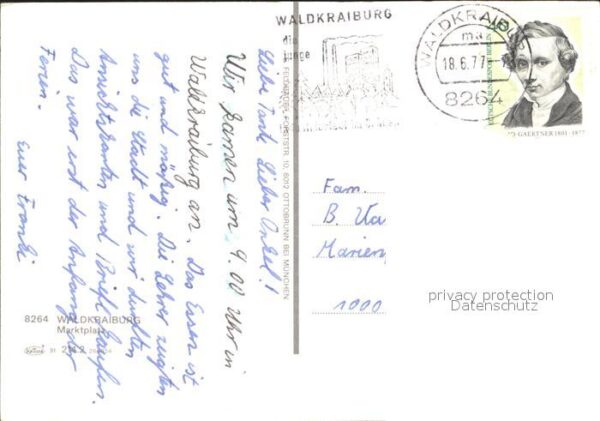 WALDKRAIBURG
die
junge
WALDKRAIBURG
ma
18.6.77
8264
GAERTNER 1801-1877
Liebe Tante Lieber Onkel!
Wir kamen um 9.00 Uhr in
Waldkraiburg an. Das Essen ist
gut und mäßig. Die Lehrer zeigten
uns die Stadt und wir durften
Ansichtskarten und Briefe kaufen.
Das war erst der Anfang der
Ferien.
Euer Franki
FORSTSTR. 10, 8012 OTTOBRUNN BEI MÜNCHEN
Fam.
B. Va
Marien
1000
privacy protection
Datenschutz
8264 WALDKRAIBURG
Marktplatz